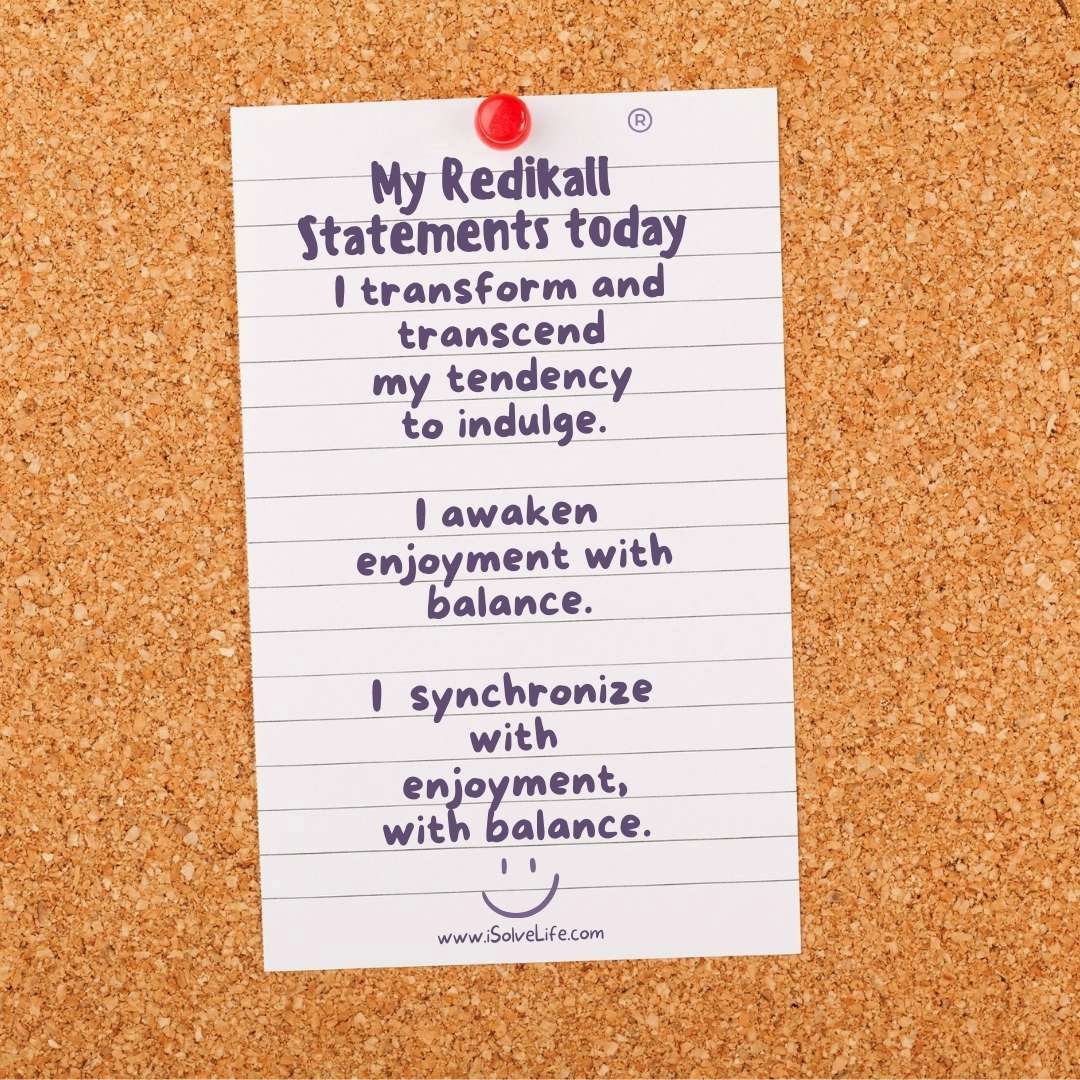 ®
My Redikall
Statements today
I transform and
transcend
my tendency
to indulge.
I awaken
enjoyment with
balance.
I synchronize
with
enjoyment,
with balance.
www.iSolveLife.com